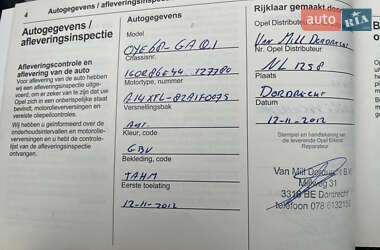 4
Autogegevens / afleveringsinspectie
Autogegevens /
afleveringsinspectie
Afleveringscontrole en
aflevering van de auto
Voor aflevering van de auto hebben
wij een afleveringsinspectie uitge-
voerd, om er zeker van te zijn dat uw
Opel zich in een onberispelijke staat
bevindt, motorolieverversingen en
vereiste oliepeilcontroles.
Wij hebben u geïnformeerd over de
onderhoudsintervallen en motorolie-
verversingen en u hebt de controle-
lijst van de afleveringsinspectie
ontvangen.
Autogegevens
Model
Chassisnr.
Motortype, nummer
Versnellingsbak
Kleur, code
GBV
Bekleding, code
TAHM
Eerste toelating
12-11-2012
Rijklaar gemaakt door
Opel Distributeur
Van Mill Dordrecht
Nr. Opel Distributeur
NL 1258
Plaats
Dordrecht
Datum
12-11-2012
Stempel en handtekening van
de leverende Opel Erkend
Reparateur
Van Mill Dordrecht BV
Mijlweg 31
3316 BE Dordrecht
telefoon 078 6132
AUTO
RIA